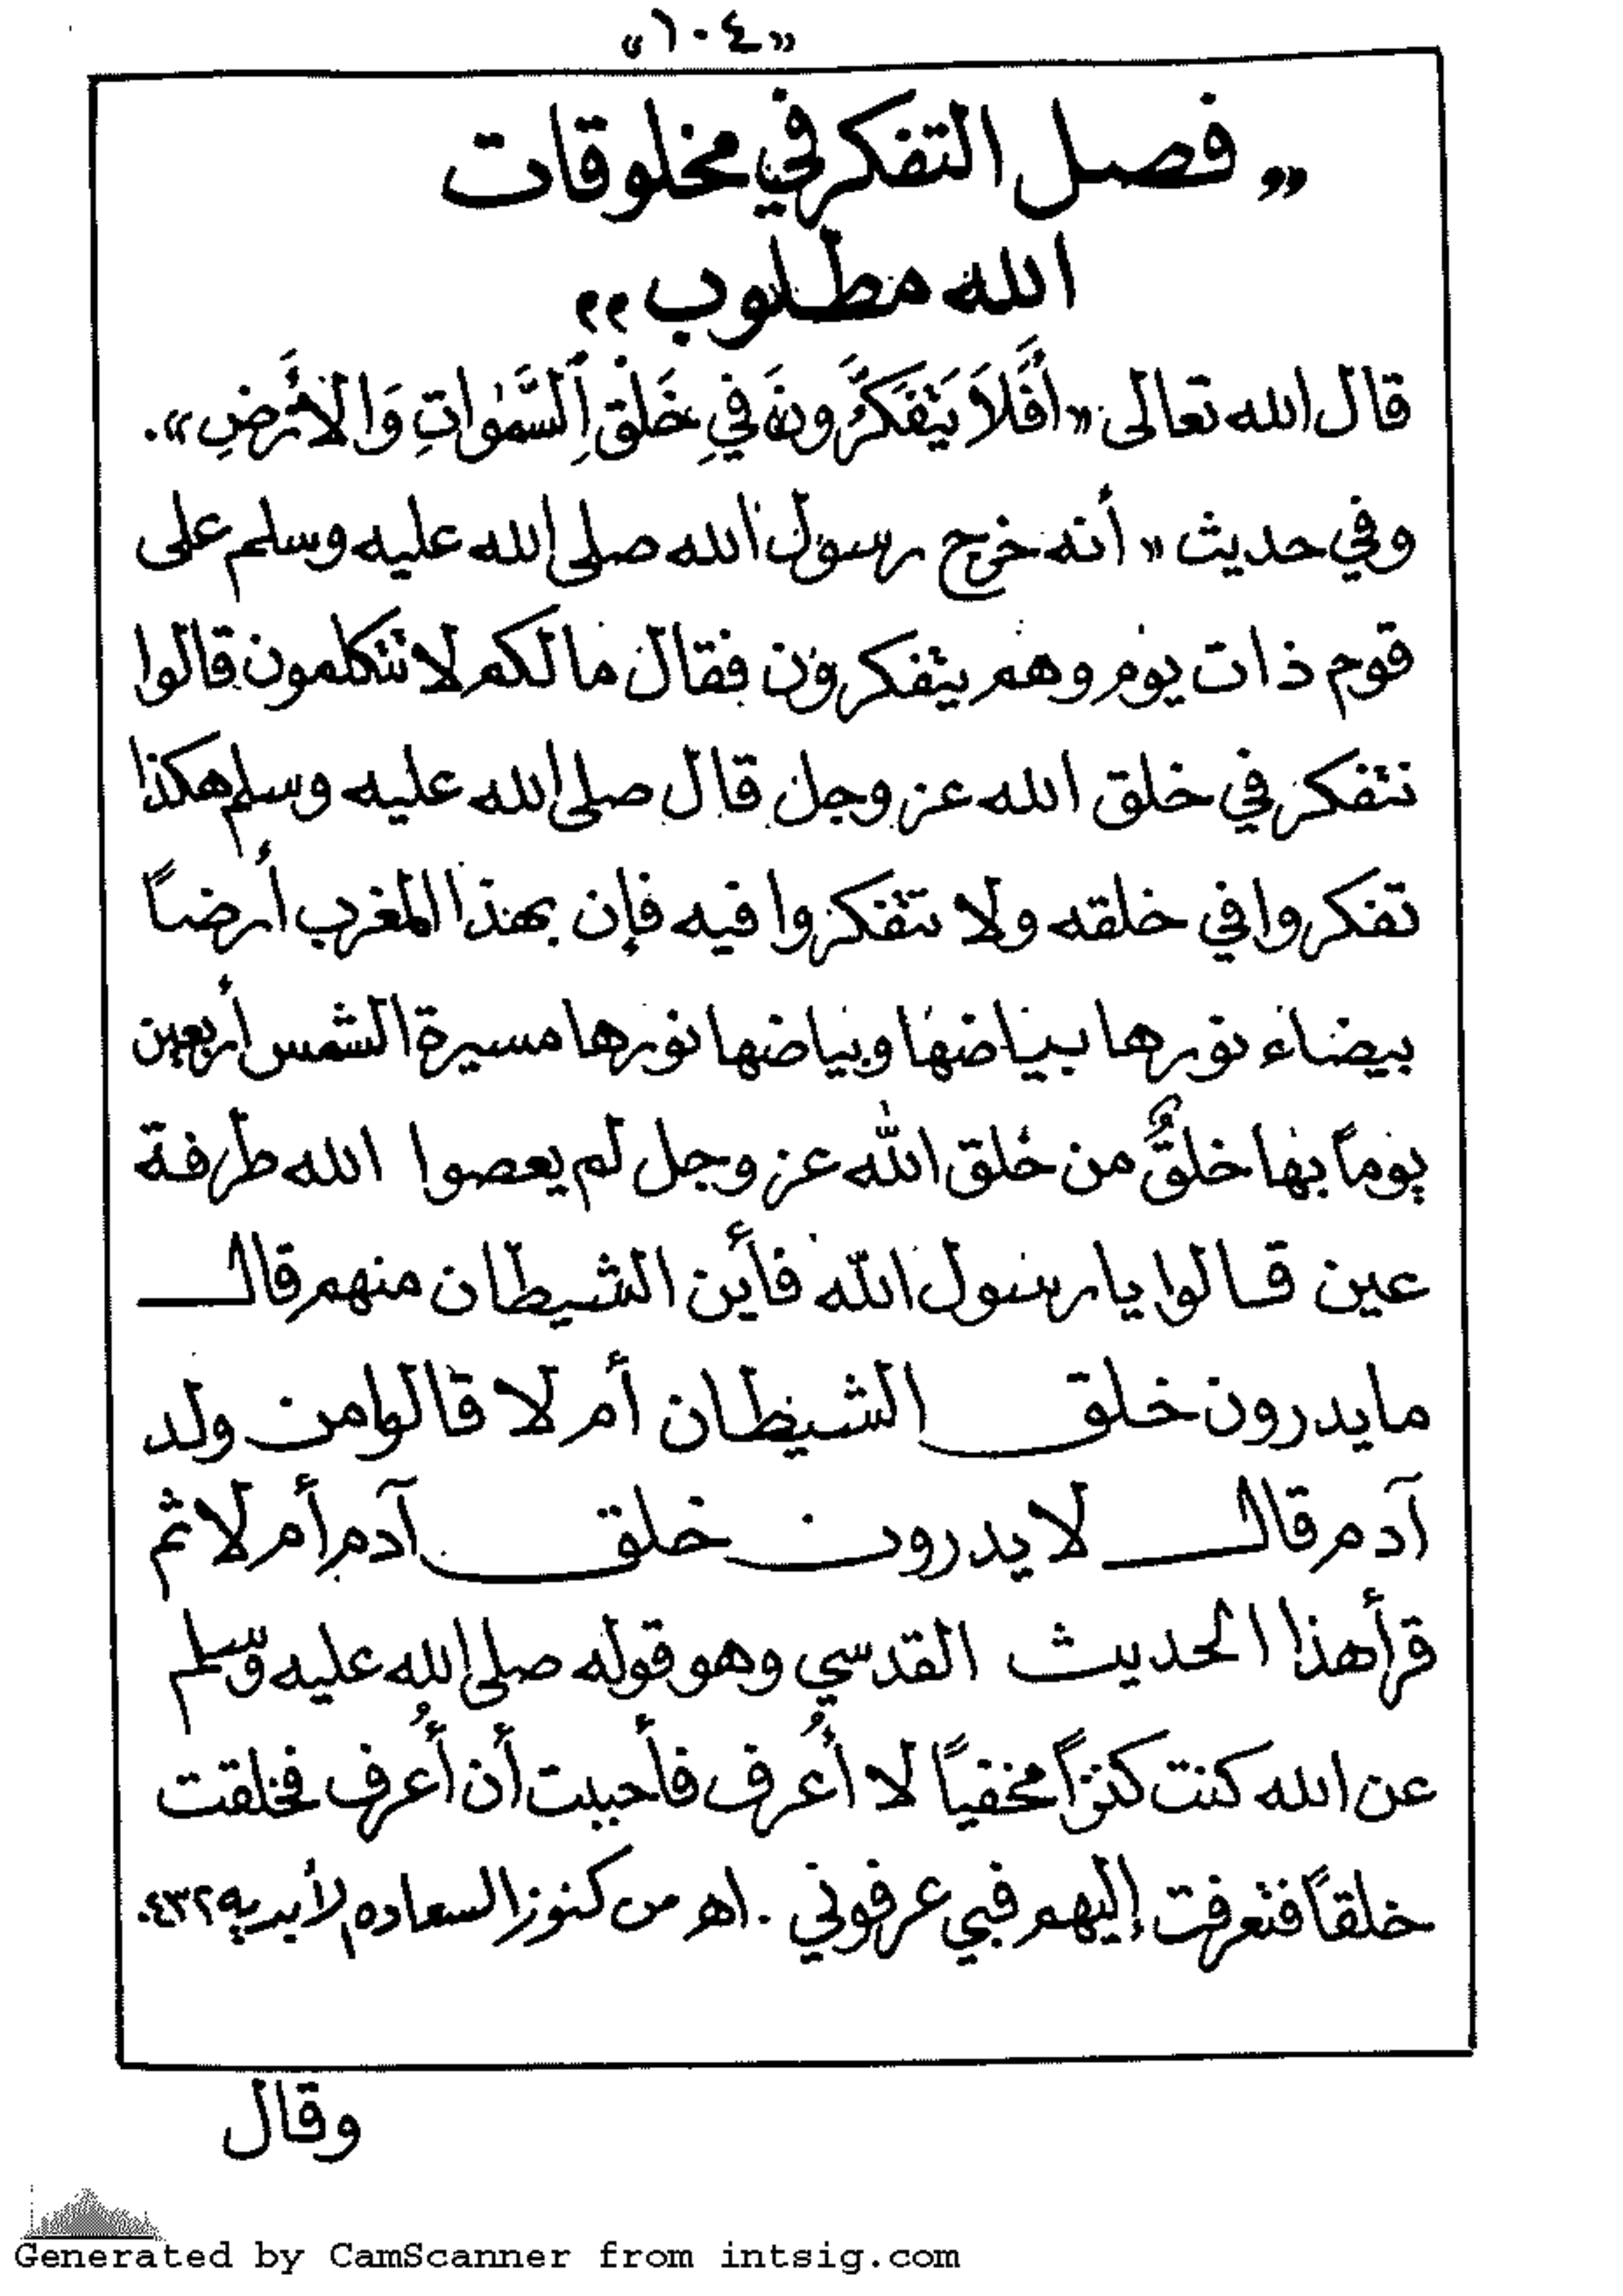 «١٠٤»
„ فصل التفكر في مخلوقات
الله مطلوب ,,
قال الله تعالى «أَفَلَا يَتَفَكَّرُونَ فِي خَلْقِ السَّمٰوَاتِ وَالْأَرْضِ».
وفي حديث «أنه خرج رسول الله صلى الله عليه وسلم على
قوم ذات يوم وهم يتفكرون فقال مالكم لا تتكلمون قالوا
نتفكر في خلق الله عز وجل قال صلى الله عليه وسلم هكذا
تفكروا في خلقه ولا تتفكروا فيه فإن بهذا المغرب أرضاً
بيضاء نورها بياضها وبياضها نورها مسيرة الشمس أربعين
يوماً بها خلقٌ من خلق الله عز وجل لم يعصوا الله طرفة
عين قالوا يا رسول الله فأين الشيطان منهم قال
ما يدرون خلق الشيطان أم لا قالوا من ولد
آدم قال لا يدرون خلق آدم أم لا ثم
قرأ هذا الحديث القدسي وهو قوله صلى الله عليه وسلم
عن الله كنت كنزاً مخفياً لا أُعرف فأحببت أن أُعرف فخلقت
خلقاً فتعرفت إليهم فبي عرفوني . اهـ من كنوز السعاده الأبديه ٤٣٢.
وقال
Generated by CamScanner from intsig.com